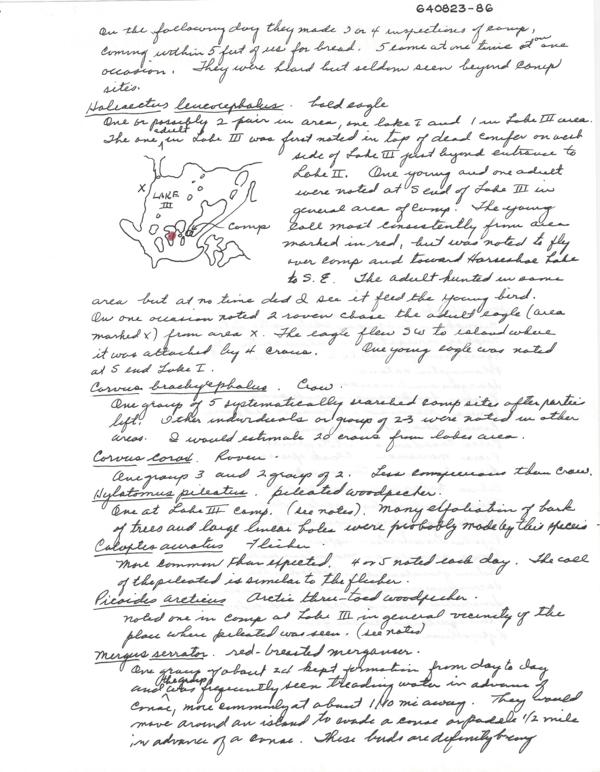 640823-86
On the following day they made 3 or 4 inspections of camp,
coming within 5 feet of us for bread. 5 came at one time on one
occasion. They were heard but seldom seen beyond camp
sites.
Haliaeetus leucocephalus. bald eagle
One or possibly 2 pair in area, one lake I and 1 in Lake III area.
The one adult in Lake III was first noted in top of dead conifer on west
side of Lake III just beyond entrance to
Lake II. One young and one adult
were noted at S end of Lake III in
general area of camp. The young
call most consistently from area
marked in red, but was noted to fly
over camp and toward Horseshoe Lake
to S.E. The adult hunted in same
X
LAKE
III
Camp
area but at no time did I see it feed the young bird.
On one occasion noted 2 raven chase the adult eagle (area
marked X) from area X. The eagle flew SW to island where
it was attacked by 4 crows. One young eagle was noted
at S end Lake I.
Corvus brachyrhynchos. Crow.
One group of 5 systematically searched camp sites after parties
left. Other individuals or group of 2-3 were noted in other
areas. I would estimate 20 crows from lakes area.
Corvus corax. Raven.
One group 3 and 2 group of 2. Less conspicuous than crow.
Hylatomus pileatus. pileated woodpecker.
One at Lake III camp. (see notes). Many exfoliation of bark
of trees and large linear holes were probably made by this species.
Colaptes auratus Flicker.
More common than expected. 4 or 5 noted each day. The call
of the pileated is similar to the flicker.
Picoides arcticus Arctic three-toed woodpecker.
noted one in camp at Lake III in general vicinity of the
place where pileated was seen. (see notes)
Mergus serrator. red-breasted merganser.
One group of about 24 kept formation from day to day
and the group was frequently seen treading water in advance of
canoe, more commonly at about 1/10 mi away. They would
move around an island to evade a canoe or paddle 1/2 mile
in advance of a canoe. These birds are definitely being